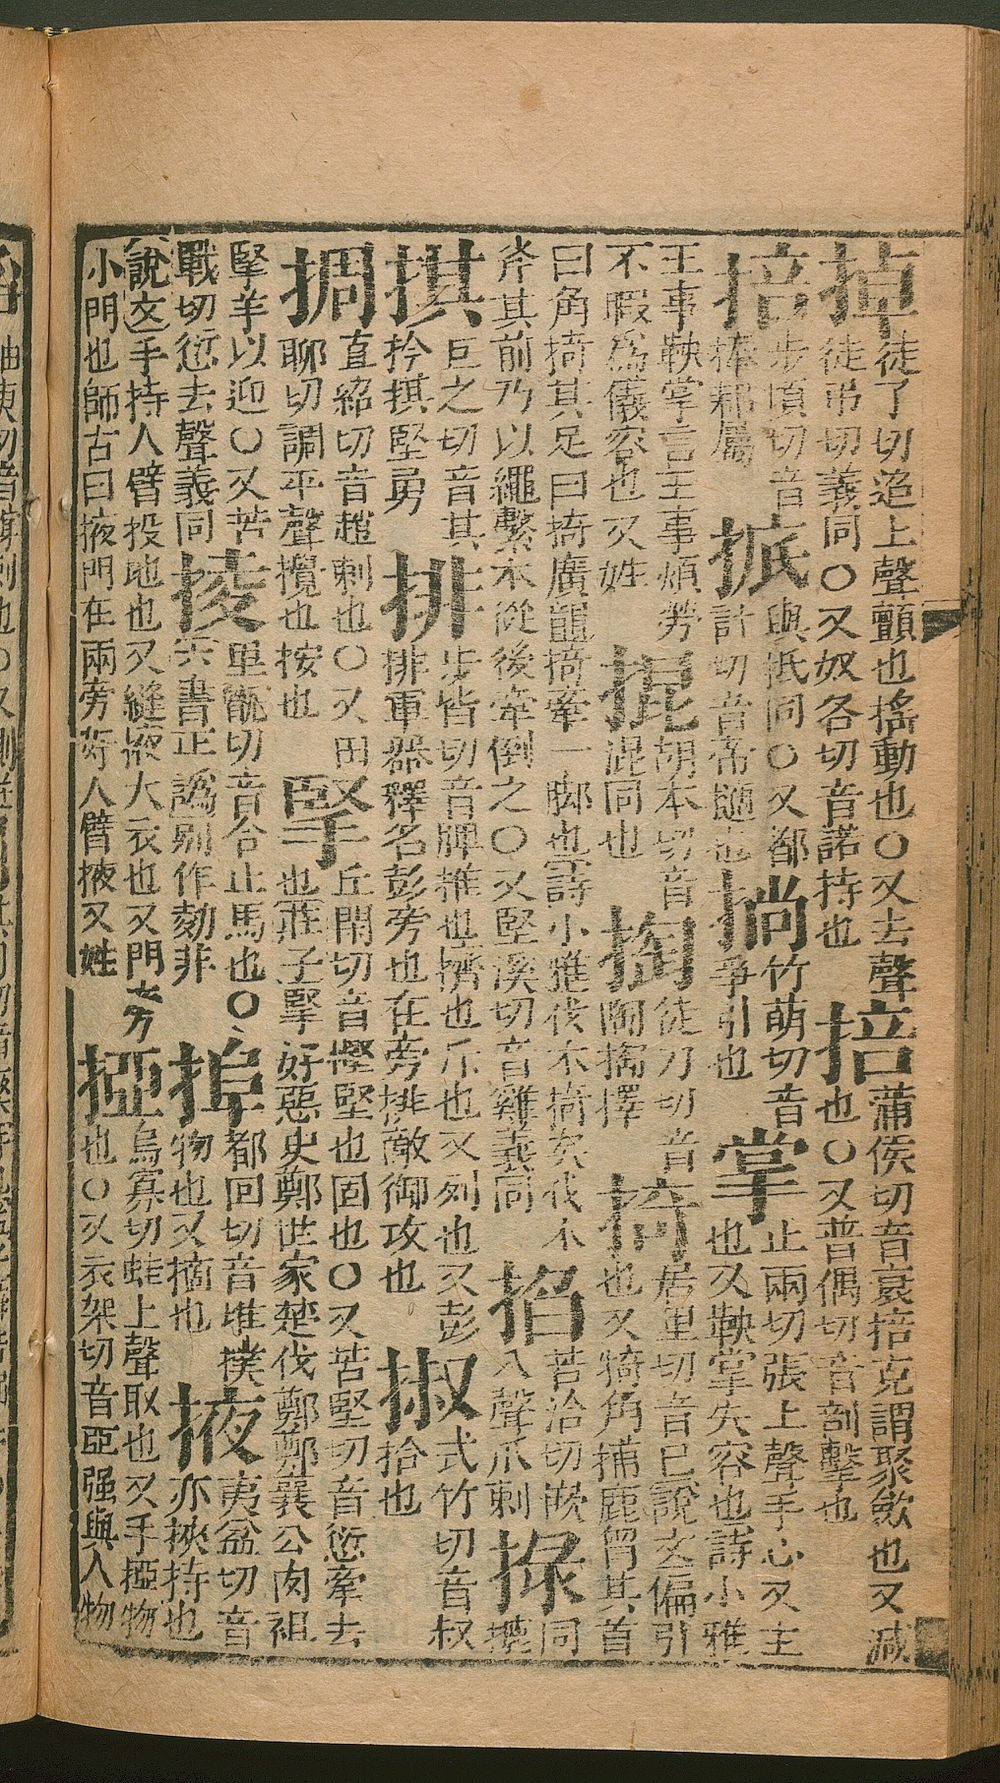 掉徒了切迢上聲顫也搖動也○又去聲
徒弔切義同○又奴各切音諾持也
掊蒲侯切音裒掊克謂聚歛也又減
也○又普偶切音剖擊也
掊步項切音
棒耞屬
掋與抵同○又都
計切音帝隨也
竹萌切音
爭引也
掌止兩切張上聲手心又主
也又鞅掌失容也詩小雅
王事鞅掌言王事煩勞
不暇爲儀容也又姓
掍胡本切音
混同也
掏徒刀切音
陶搯擇
掎居里切音己說文偏引
也又犄角捕鹿曰其首
曰角掎其足曰掎廣韻掎牽一脚也詩小雅伐木掎矣伐木
斧其前乃以繩繫木從後牽倒之○又堅溪切音雞義同
掐苦洽切嵌
入聲爪刺
同
掑巨之切音其
扲掑堅勇
排步皆切音牌推也擠也斥也又列也又彭
排軍器釋名彭旁也在旁排敵御攻也
掓式竹切音叔
拾也
㨄直紹切音趙刺也○又田
聊切調平聲攪也按也
掔丘閑切音慳堅也固也○又苦堅切音愆牽去
也莊子掔好惡史鄭世家楚伐鄭鄭襄公肉袒
掔羊以迎○又苦
戰切愆去聲義同
掕里甑切音合止馬也○
六書正譌別作勑非
都回切音堆撲
物也又摘也
掖夷益切音
亦挾持也
說文手持人臂投地也又縫掖大衣也又門旁
小門也師古曰掖門在兩旁如人臂掖又姓
掗烏寡切蛙上聲取也又手掗物
也○又衣架切音亞强與人物